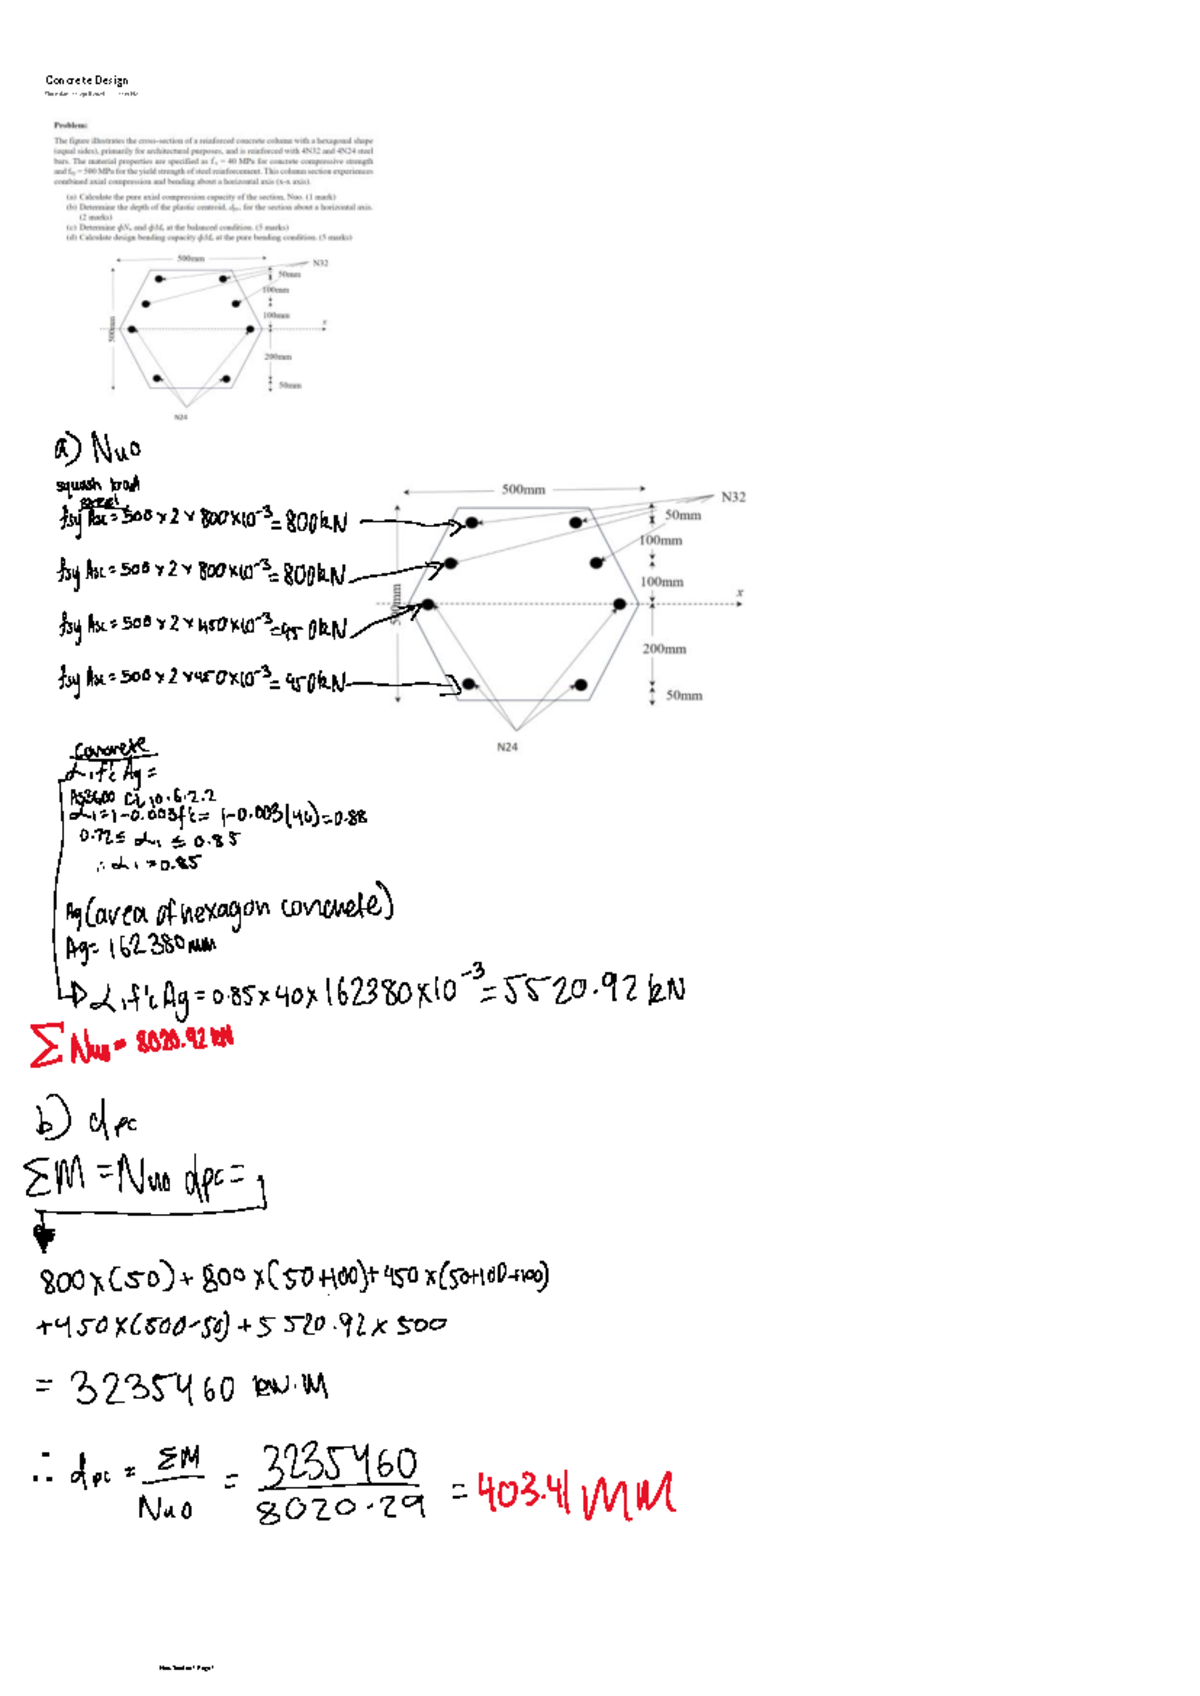 Concrete Design
Problem:
The figure illustrates the cross-section of a reinforced concrete column with a hexagonal shape
(equal sides), primarily for architectural purposes, and is reinforced with 4N32 and 4N24 steel
bars. The material properties are specified as f'c = 40 MPa for concrete compressive strength
and fsy = 500 MPa for the yield strength of steel reinforcement. This column section experiences
combined axial compression and bending about a horizontal axis (x-x axis).
(a) Calculate the pure axial compression capacity of the section, Nuo. (1 mark)
(b) Determine the depth of the plastic centroid, dpc, for the section about a horizontal axis.
(2 marks)
(c) Determine ϕNu and ϕMu at the balanced condition. (5 marks)
(d) Calculate design bending capacity ϕMu at the pure bending condition. (5 marks)
500mm
N32
50mm
100mm
100mm
x
500mm
200mm
50mm
N24
a) Nuo
squash load
steel
fsy Asc = 500 x 2 x 800x10⁻³ = 800kN
fsy Asc = 500 x 2 x 800x10⁻³ = 800kN
fsy Asc = 500 x 2 x 450x10⁻³ = 450kN
fsy Asc = 500 x 2 x 450x10⁻³ = 450kN
500mm
N32
50mm
100mm
100mm
x
500mm
200mm
50mm
N24
concrete
α₁f'c Ag =
AS3600 CL 10.6.2.2
α₁=1-0.003f'c = 1-0.003(40)=0.88
0.72 ≤ α₁ ≤ 0.85
∴ α₁ = 0.85
Ag (area of hexagon concrete)
Ag= 162380mm
α₁f'c Ag = 0.85x40x162380x10⁻³ = 5520.92 kN
∑ Nuo = 8020.92 kN
b) dpc
∑M = Nuo dpc =
800x(50)+ 800x(50+100)+450x(50+100+100)
+450x(500-50)+5520.92x500
= 3235460 kN.M
∴ dpc = ∑M/Nuo = 3235460/8020.29 = 403.41 MM